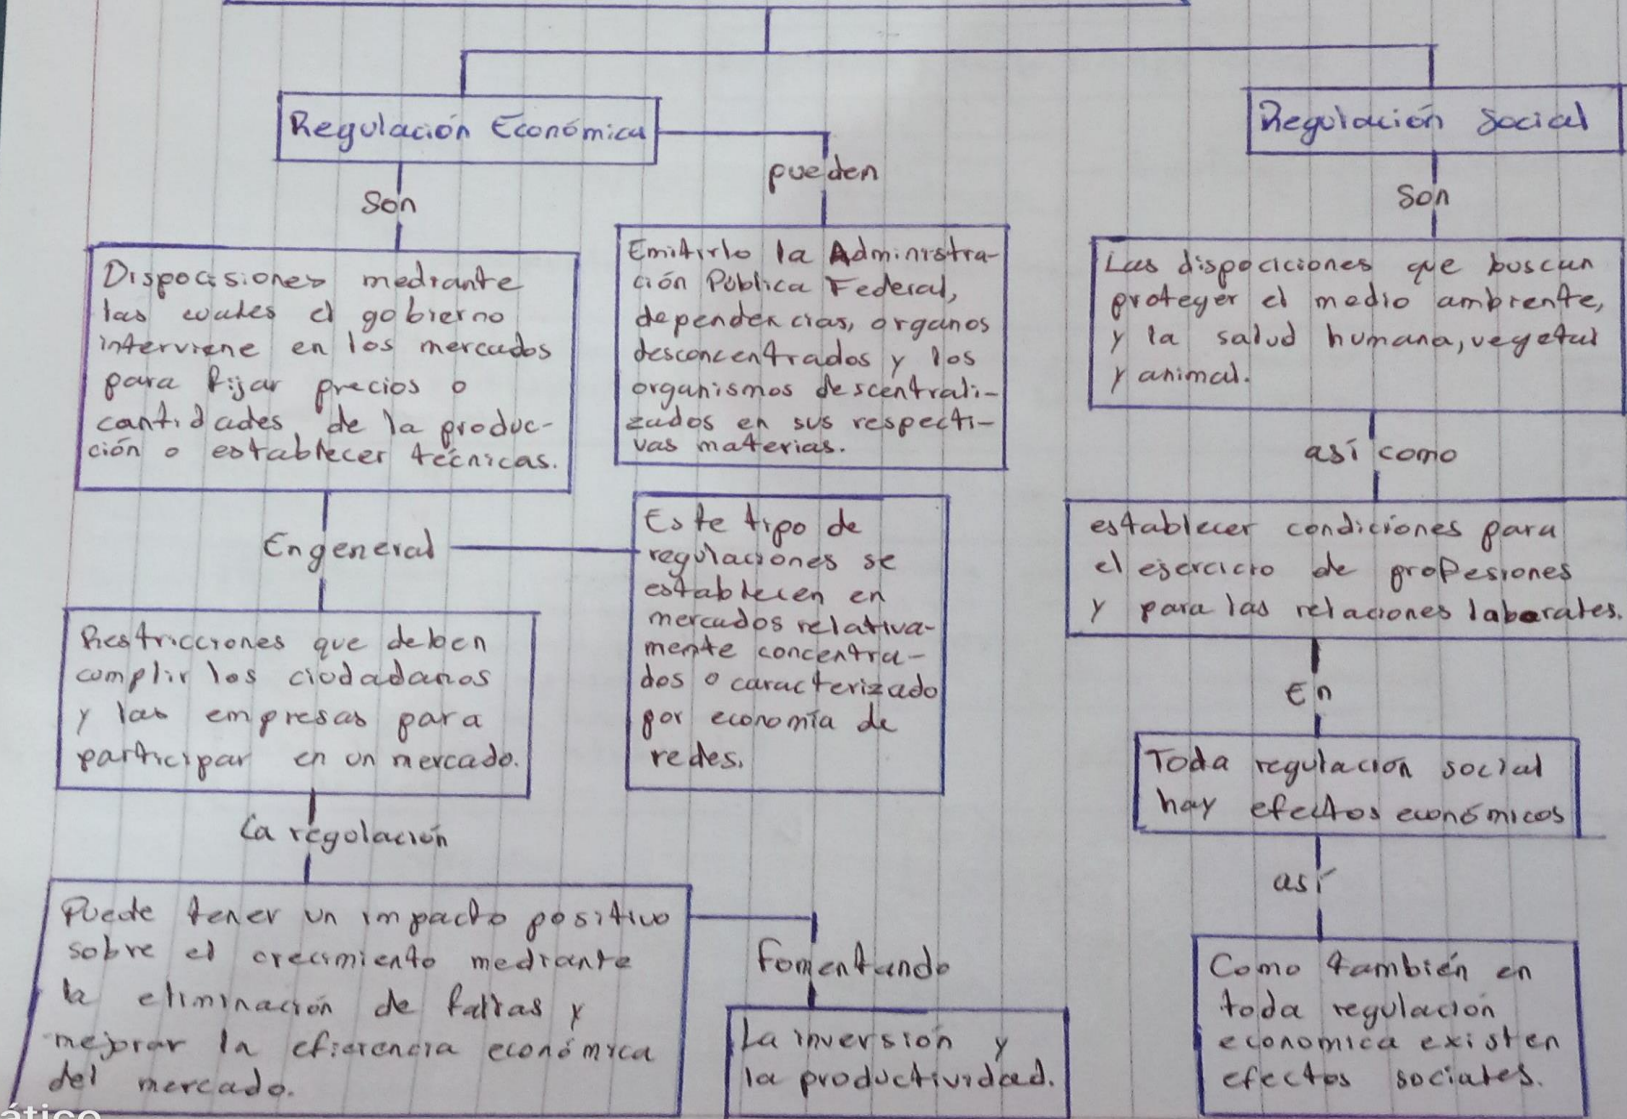 Regulación Económica
Son
Disposisiones mediante
las cuales el gobierno
interviene en los mercados
para fijar precios o
cantidades de la produc-
ción o establecer técnicas.
En general
Restricciones que deben
cumplir los ciudadanos
y las empresas para
participar en un mercado.
La regulación
Puede tener un impacto positivo
sobre el crecimiento mediante
la eliminación de fallas y
mejorar la eficiencia económica
del mercado.
Fomentando
La inversión y
la productividad.
pueden
Emitirlo la Administra-
ción Pública Federal,
dependencias, organos
desconcentrados y los
organismos descentrali-
zados en sus respecti-
vas materias.
Este tipo de
regulaciones se
establecen en
mercados relativa-
mente concentra-
dos o caracterizado
por economía de
redes.
Regulación Social
Son
Las disposiciones que buscan
proteger el medio ambiente,
y la salud humana, vegetal
y animal.
así como
establecer condiciones para
el esercicio de profesiones
y para las relaciones laborales.
En
Toda regulación social
hay efectos económicos
así
Como también en
toda regulación
economica existen
efectos sociales.
ático